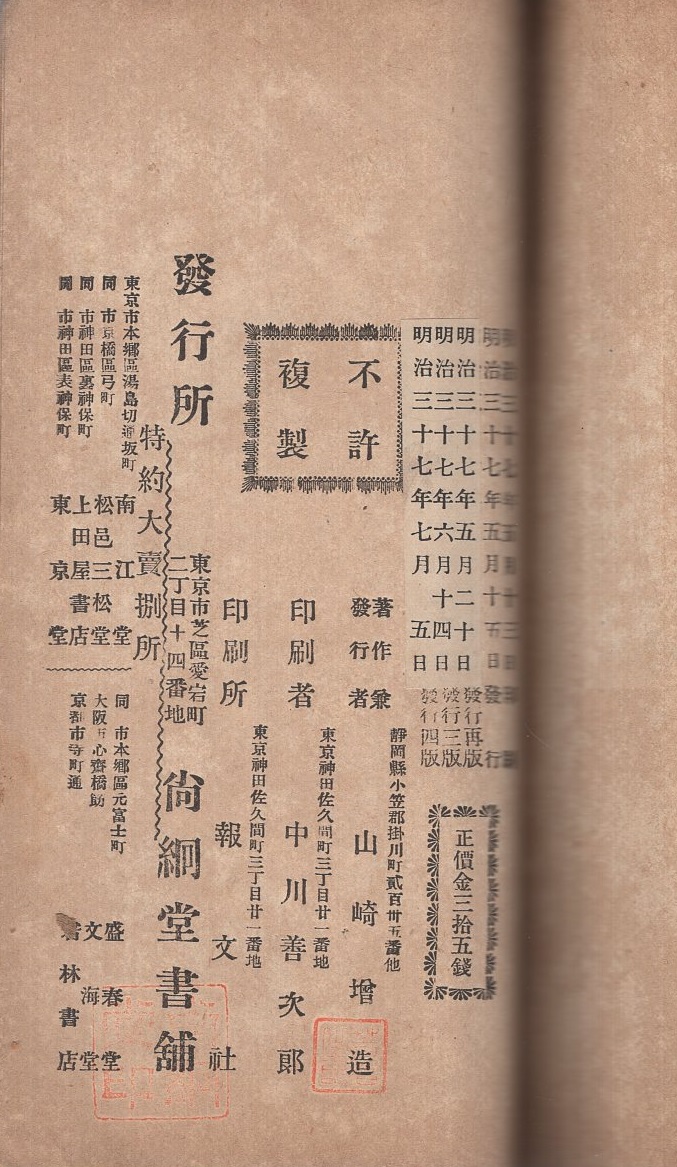 明治三十七年五月十三日印刷
明治三十七年五月十五日發行
明治三十七年五月二十日發行再版
明治三十七年六月十四日發行三版
明治三十七年七月五日發行四版
正價金三拾五錢
不許
複製
靜岡縣小笠郡掛川町貳百卅五番他
著作兼
發行者
山崎增造
東京神田佐久間町三丁目廿一番地
印刷者 中川善次郎
東京神田佐久間町三丁目廿一番地
印刷所 報文社
發行所
東京市芝區愛宕町
二丁目十四番地
尙絅堂書舖
特約大賣捌所
東京市本鄕區湯島切通坂町 南江堂
同 市京橋區弓町 松邑三松堂
同 市神田區裏神保町 上田屋書店
同 市神田區表神保町 東京堂
同 市本鄕區元富士町 盛春堂
大阪市心齋橋 文海堂
京都市寺町通 林書店